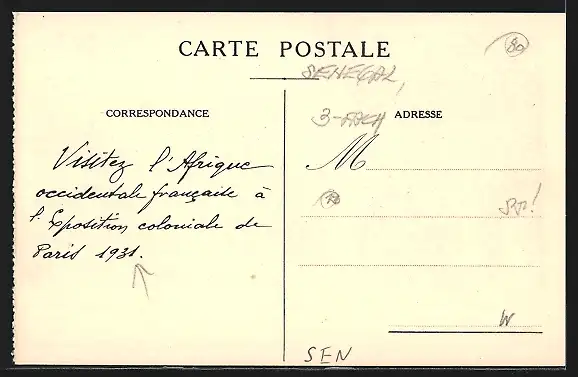 CARTE POSTALE
80
SENEGAL,
3-FACH
CORRESPONDANCE
ADRESSE
M
Visitez l'Afrique
occidentale française à
l'Exposition coloniale de
Paris 1931.
W
SEN